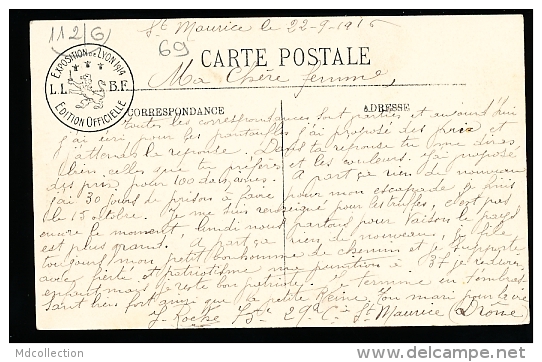 112/G
St Maurice le 22-9-1916
69
CARTE POSTALE
Ma Chère femme,
EXPOSITION DE LYON 1914
L.L. B.F.
EDITION OFFICIELLE
CORRESPONDANCE
ADRESSE
toutes les correspondances sont parties et aujourd'hui
j'ai écri pour les pantoufles j'ai proposé des prix et
j'attends la reponse. Dans ta reponse tu me diras
bien celles que tu préfères et les couleurs. J'ai proposé
des prix pour 100 dans armes. A part ça rien de nouveau
j'ai 30 jours de prison à faire pour mon escapade je finis
le 15 octobre. Je me suis renseigné pour les truffes, c'est pas
encore le moment, lundi nous partons pour Vaison le pays
est plus grand. A part ça rien de nouveau, je file
toujours mon petit bonhomme de chemin et je supporte
avec fierté et patriotisme ma punition à
enfant mais je reste bon patriote. Je termine en t'embras
sant bien fort ainsi que la petite Reine. Ton mari pour la vie
J. Roche 75e 29e Cie St Maurice (Drôme)
Mdcollection
http://www.delcampe.net